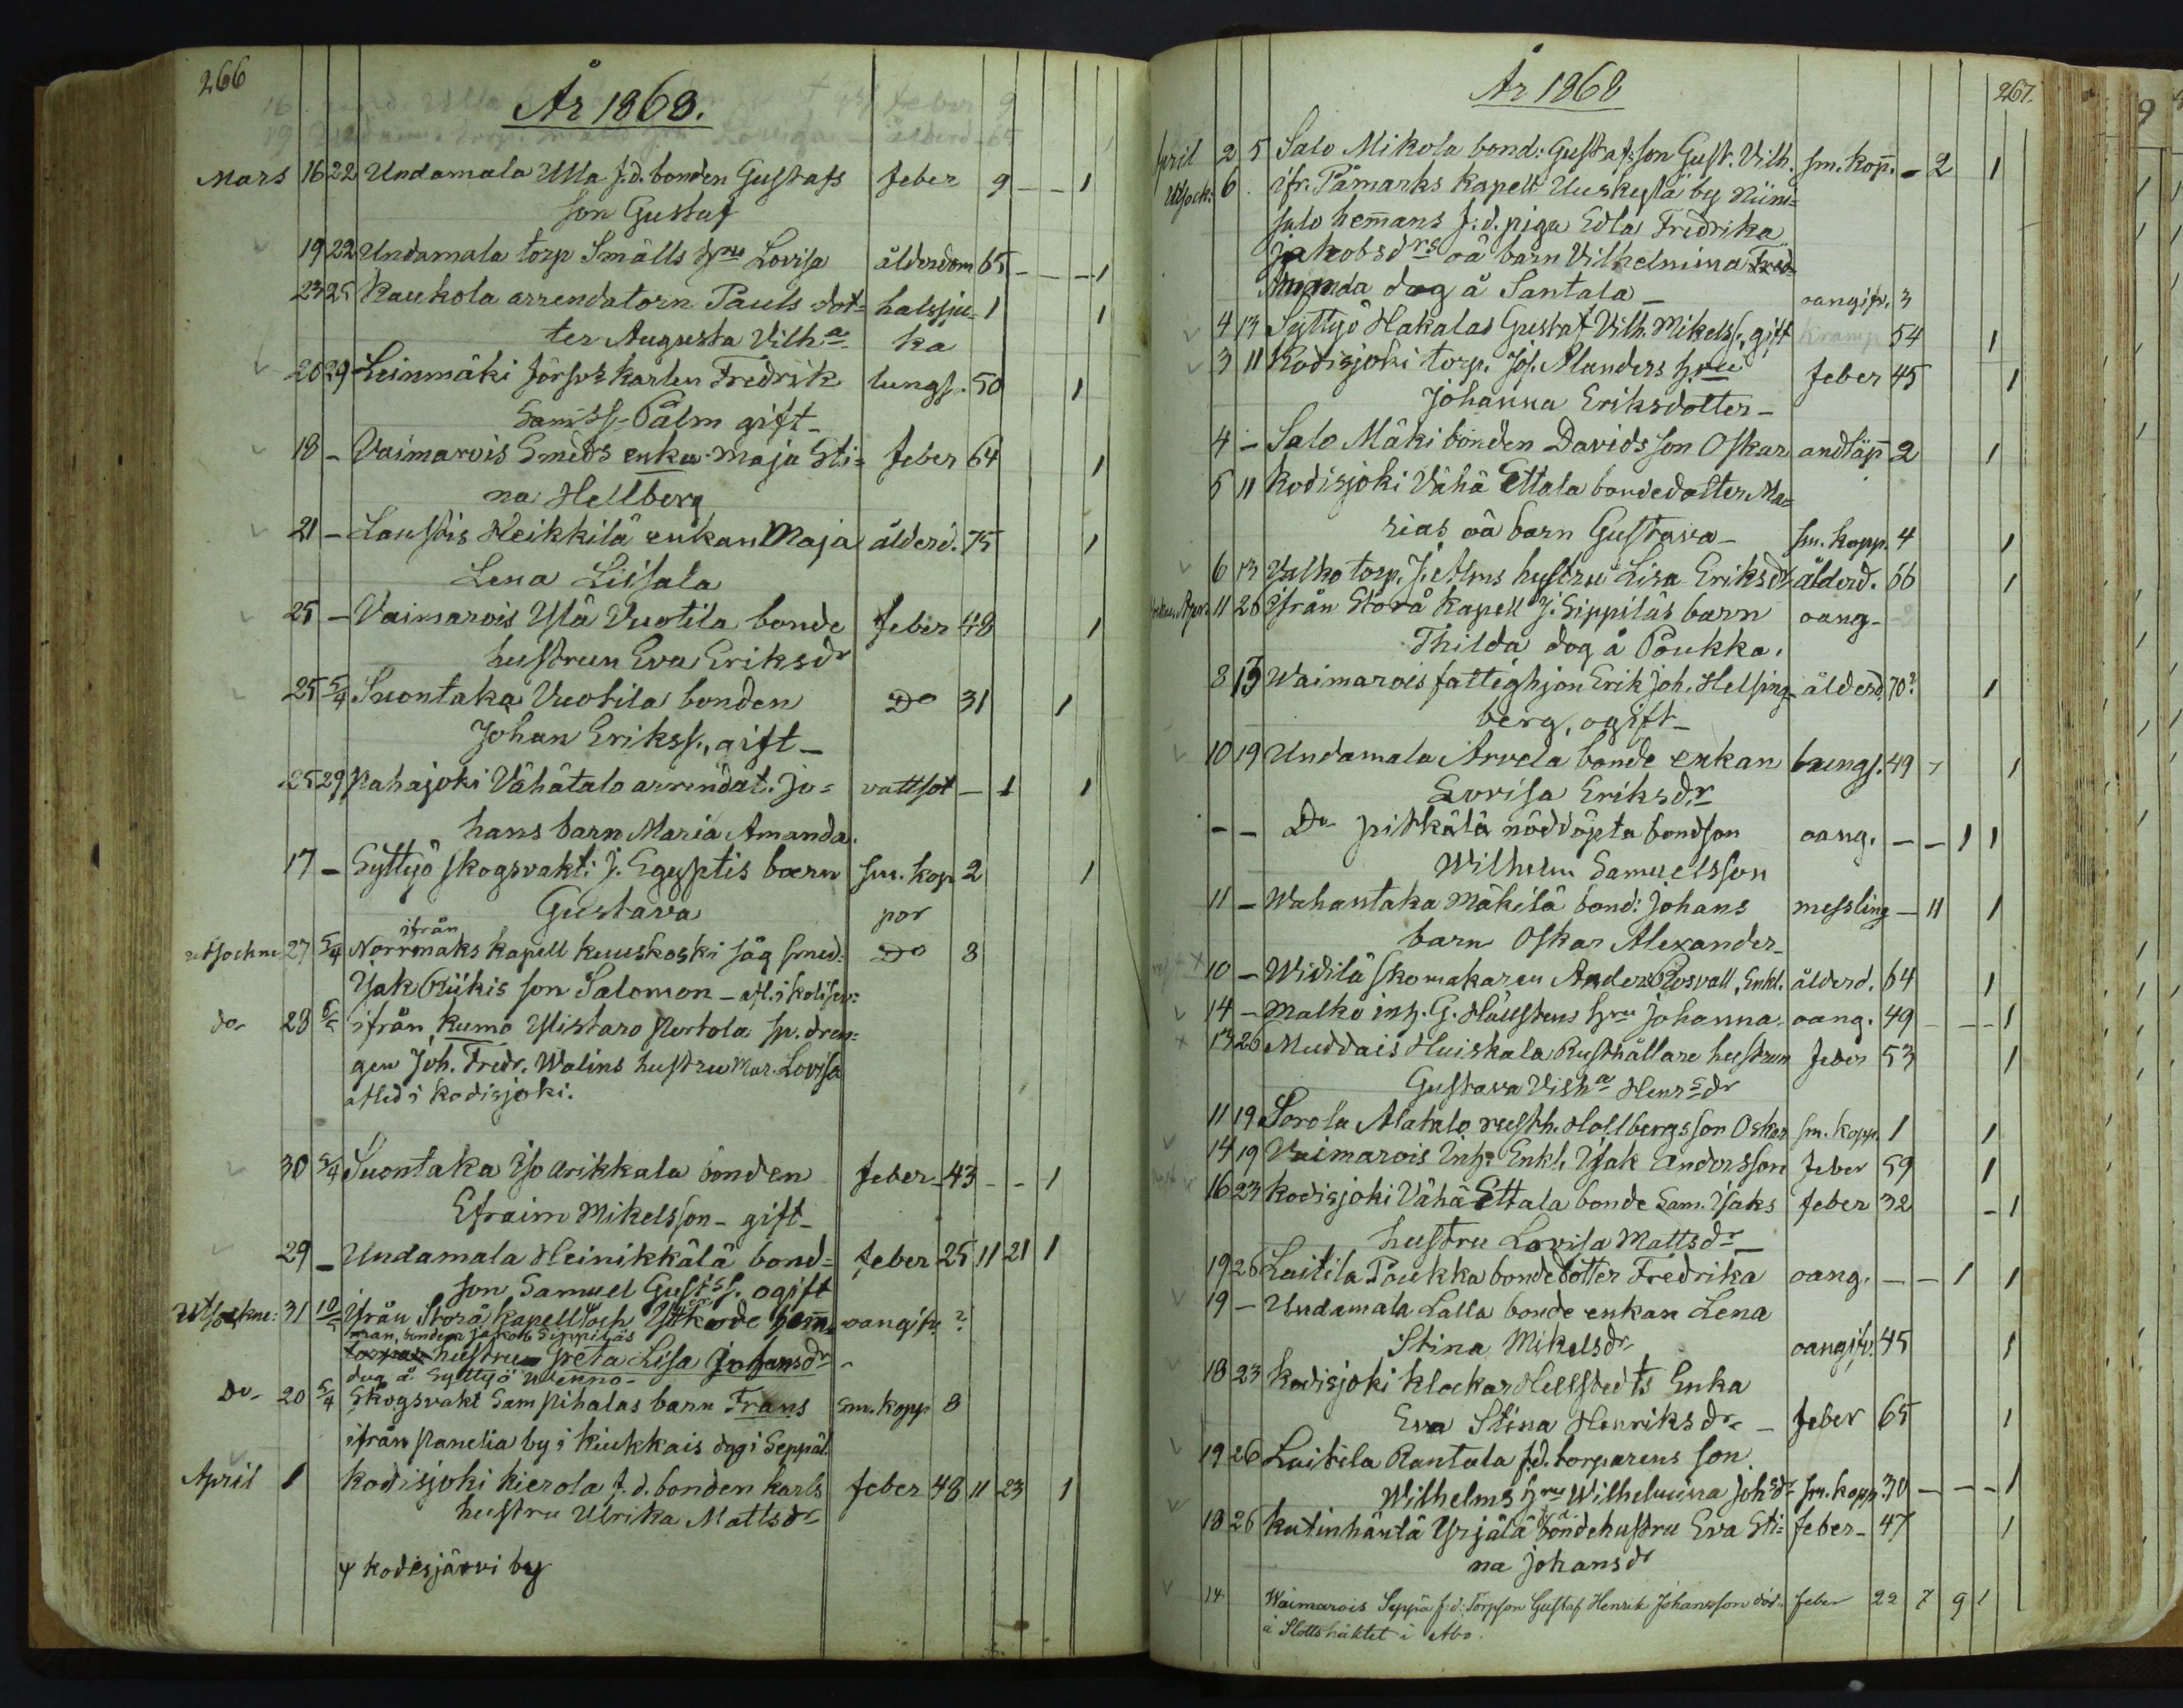 266
År 1868.
Mars 16 22 Undamala Ulla f.d. bonden Gustafs feber 9 - - 1
son Gustaf
19 22 Undamala torp Smälls hru Lovisa ålderdom 65 - - - 1
23 25 Kaukola arrendatorn Pauls dot= halssju= 1 1
ter Augusta Vilh:a ka
20 29 Leinmäki Försv:s karlen Fredrik lungs. 50 1
Sams:s. Palm gift -
18 - Vaimarois Smeds enka Maja Sti= feber 64 1
na Hellberg
21 - Laustis Heikkilä enkan Maja ålderd. 75 1
Lena Liisala
25 - Vaimarois Ylä Vuotila bonde feber 48 1
hustrun Eva Eriksdr
25 5/4 Suontaka Vuotila bonden Do 31 1
Johan Erikss., gift -
25 29 Nahajoki Vähätalo arrendat. Jo= vattsot - 1 1
hans barn Maria Amanda.
17 - Syttyö skogsvakt: J. Egyptis barn sm. kop 2 1
Gustava por
ifrån
utsockne 27 5/4 Norrmaks kapell Kuuskoski såg smed: Do 8
Isak Riikis son Salomon - afl. i Kodisjo:
do 28 ifrån Kumo Ylistaro Pertola sp. dren=
gen Joh. Fredr. Walins hustru Mar. Lovisa
afled i Kodisjoki.
30 5/4 Suontaka Iso Arikkala bonden feber 43 - - 1
Efraim Mikelsson - gift -
29 - Undamala Heinikkälä bond= feber 25 11 21 1
son Samuel Gusts:s. ogift
Utsockne: 31 Ifrån Storå kapell och hem= oangifv. ?
man, bonden Jakob Sippiläs
hustru Greta Lisa Johansdr
dog å Syttyö
Do 20 5/4 Skogsvakt Sam Pihalas barn Frans sm. kopp 8
ifrån Panelia by i Kiukkais dog i Seppäl
April 1 Kodisjoki Kierola f.d. bonden Karls feber 48 11 23 1
hustru Ulrika Mattsdr
ψ Kodisjärvi by
År 1868
267.
April 2 5 Salo Mikola bond: Gustafs son Gust. Vilh. sm. kop. - 2 1
Utsock: 6 ifr. Påmarks kapell Uuskylä by Niini=
salo hemans f.d. piga Edla Fredrika
Jakobsdrs oä barn Vilhelmina
Amanda dog å Santala - oangifv. 3
4 13 Syttyö Hakalas Gustaf Vilh. Mikelss., gift Kramp 54 1
3 11 Kodisjoki torp. Jos. Alanders hru feber 45 1
Johanna Eriksdotter -
4 - Salo Mäki bonden Davids son Oskar andtäp 2 1
5 11 Kodisjoki Vähä Ettala bondedotter Ma=
rias oä barn Gustava - sm. kopp. 4 1
6 13 Valko torp. J. Alms hustru Lisa Eriksdr ålderd. 66 1
11 26 Ifrån Storå kapell J. Sippiläs barn oang -
Thilda dog å Poukka.
8 13 Waimarois fattighjon Erik Joh. Helsing= ålderd. 70? 1
berg, ogift -
10 19 Undamala Arvela bonde enkan lungs. 49 1
Lovisa Eriksdr
- - Do pitkälä nöddöpta bondson oang. - - 1 1
Wilhelm Samuelsson
11 - Wahantaka Mäkilä bond: Johans messling - 11 1
barn Oskar Alexander -
10 - Widilä skomakaren Anders Rosvall, Enkl. ålderd. 64 1
14 - Malko inh. G. hru Johanna oang. 49 - - - 1
13 26 Muddais Huiskala Rusthållare hustrun feber 53 1
Gustava Vilh:a Henrsdr
11 19 Sorola Alatalo rusth. Hollbergs son Oskar sm. kopp. 1 1
14 19 Vaimarois Inh: Enkl. Isak Andersson feber 59 1
16 23 Kodisjoki Vähä-Ettala bonde Sam. Isaks feber 32 - 1
hustru Lovisa Mattsdr -
19 26 Laitila Poukka bondedotter Fredrika oang. - - 1 1
19 - Undamala Lalla bonde enkan Lena
Stina Mikelsdr oangifv. 45 1
18 23 Kodisjoki Klockar Hellstedts Enka
Eva Stina Henriksdr - feber 65 1
19 26 Laitila Rantala f.d. torparens son
Wilhelms hru Wilhelmina Johsdr sm. kopp. 30 - - - 1
18 26 Katinhäntä Yrjälä f.d. bondehustru Eva Sti= feber - 47 1
na Johansdr
14 Waimarois Seppä f.d. Torpson Gustaf Henrik Johansson död feber 22 7 9 1
å Slottshäktet i Åbo.